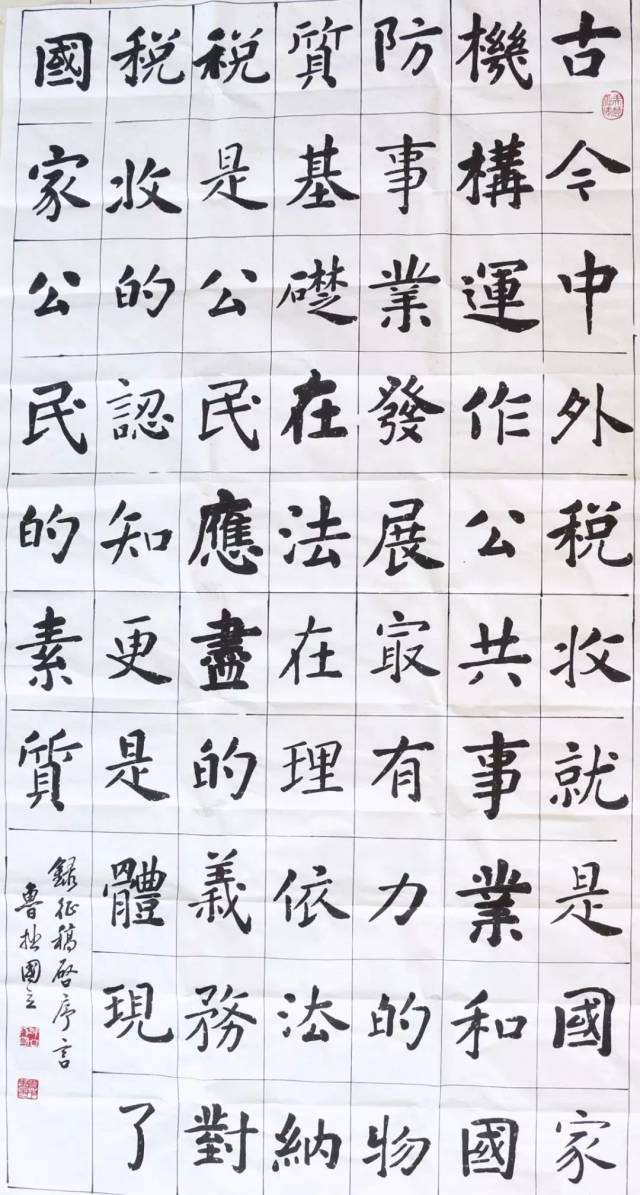 古今中外税收就是國家
機構運作公共事業和國
防事業發展最有力的物
質基礎在法在理依法納
税是公民應盡的義務對
税收的認知更是體現了
國家公民的素質
錄征稿啓序言
魯拙國立